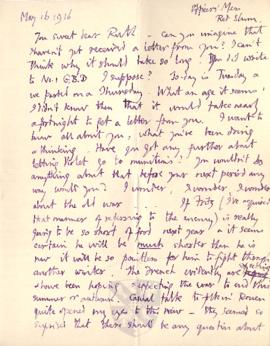 May 16 1916
Officers' Mess
You sweet dear Ruth - can you imagine that
I haven't yet received a letter from you? I can't
think why it should take so long. You did write
to No. 1 G.B.D I suppose? To-day is Tuesday &
we parted on a Thursday. What an age it seems!
I didn't know then that it would take nearly
a fortnight to get a letter from you. I want to
know all about you, what you've been doing
& thinking. Have you got any further about
letting Violet go to munitions? You wouldn't do
anything about that before your next period any
way would you? I wonder, I wonder, I wonder
about the old war. If Fritz (I've acquired
that manner of referring to the enemy) is really
going to be so short of food next year, & it seems
certain he will be much shorter than he is
now it will be so pointless for him to fight through
another winter. The French evidently are
& have been hoping & expecting the war to end this
summer or autumn. Casual talk to
quite opened my eyes to this view - they seemed so
surprised that there should be any question about